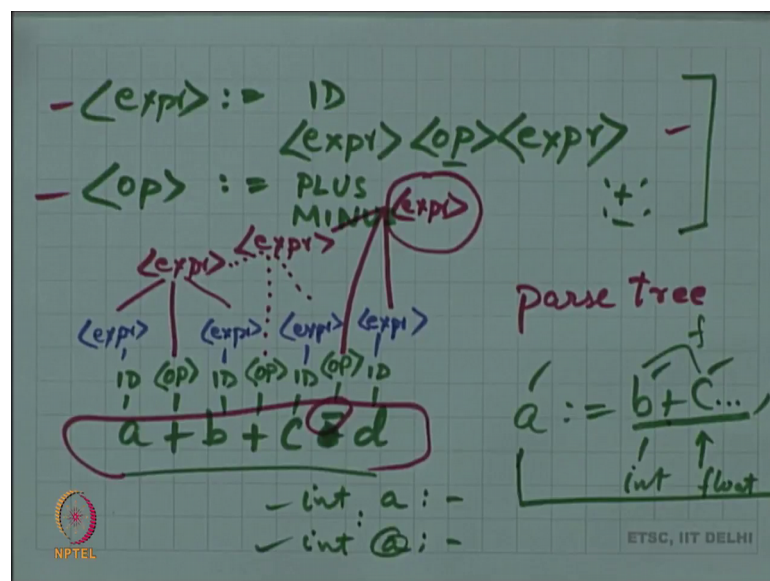 - <expr> := ID
<expr> <op> <expr> -
- <op> := PLUS '+'
MINUS '-'
<expr>
<expr> <expr>
<expr> <expr> <expr> <expr>
ID <op> ID <op> ID <op> ID
a + b + c - d
parse tree
f
a := b + c...
int float
- int a : -
- int a ; -
NPTEL
ETSC, IIT DELHI